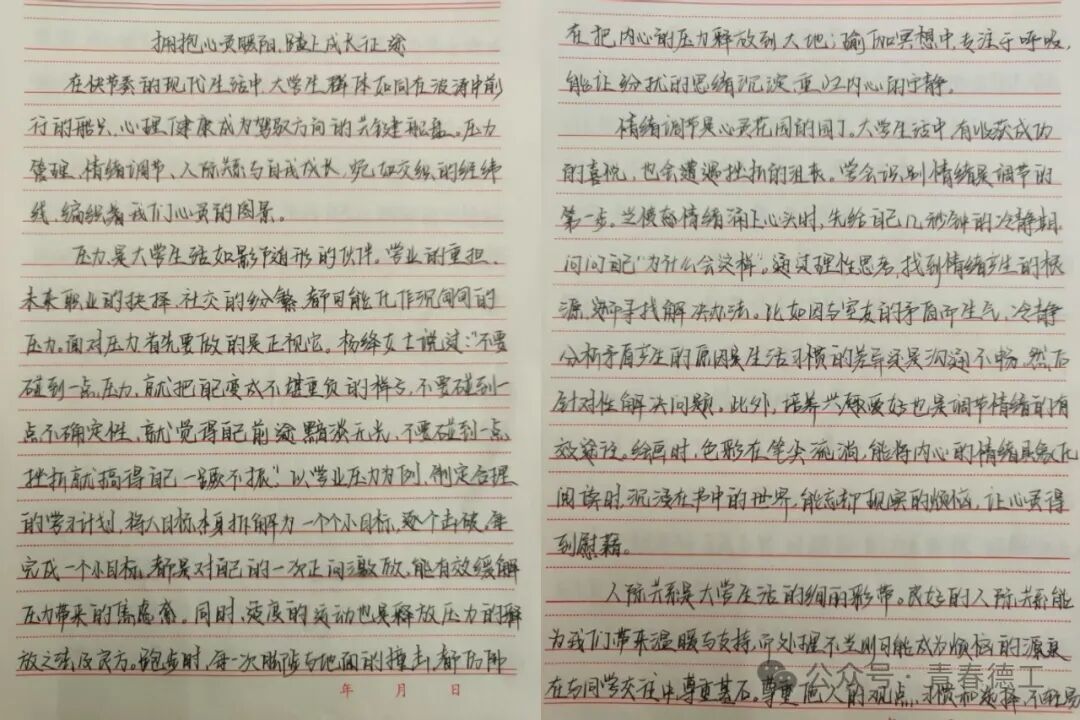 拥抱心灵暖阳,踏上成长征途
在快节奏的现代生活中,大学生群体如同在波涛中前
行的船只,心理健康成为驾驭方向的关键舵盘。压力
管理、情绪调节、人际关系与自我成长,宛如交织的经纬
线,编织着我们心灵的图景。
压力是大学生活如影随形的伙伴。学业的重担、
未来职业的抉择、社交的纷繁,都可能化作沉甸甸的
压力。面对压力首先要做的是正视它。杨绛女士说过:“不要
碰到一点压力,就把自己变成不堪重负的样子,不要碰到一
点不确定性,就觉得自己前途黯淡无光,不要碰到一点
挫折就搞得自己一蹶不振。”以学业压力为例,制定合理
的学习计划,将大目标本身拆解为一个个小目标,逐个击破,每
完成一个小目标,都是对自己的一次正向激励,能有效缓解
压力带来的焦虑。同时,适度的运动也是释放压力的
放之良方。跑步时,每一次脚步与地面的撞击,都仿佛
年 月 日
在把内心的压力释放到大地;瑜伽冥想中,专注于呼吸,
能让纷扰的思绪沉淀,重归内心的宁静。
情绪调节是心灵花园的园丁。大学生活中,有收获成功
的喜悦,也会遭遇挫折的沮丧。学会识别情绪是调节的
第一步。当愤怒情绪涌上心头时,先给自己几秒钟的冷静期,
问问自己“为什么会这样”。通过理性思考,找到情绪产生的根
源,进而寻找解决办法。比如因与室友的矛盾而生气,冷静
分析矛盾产生的原因是生活习惯的差异还是沟通不畅,然后
针对性解决问题。此外,培养兴趣爱好也是调节情绪的有
效途径。绘画时,色彩在笔尖流淌,能将内心的情绪具象化
阅读时,沉浸在书中的世界,能忘却现实的烦恼,让心灵得
到慰藉。
人际关系是大学生活的绚丽彩带。良好的人际关系能
为我们带来温暖与支持,而处理不当则可能成为烦恼的源泉
在与同学交往中,尊重基石。尊重他人的观点、习惯和选择,不轻易
公众号·青春德工